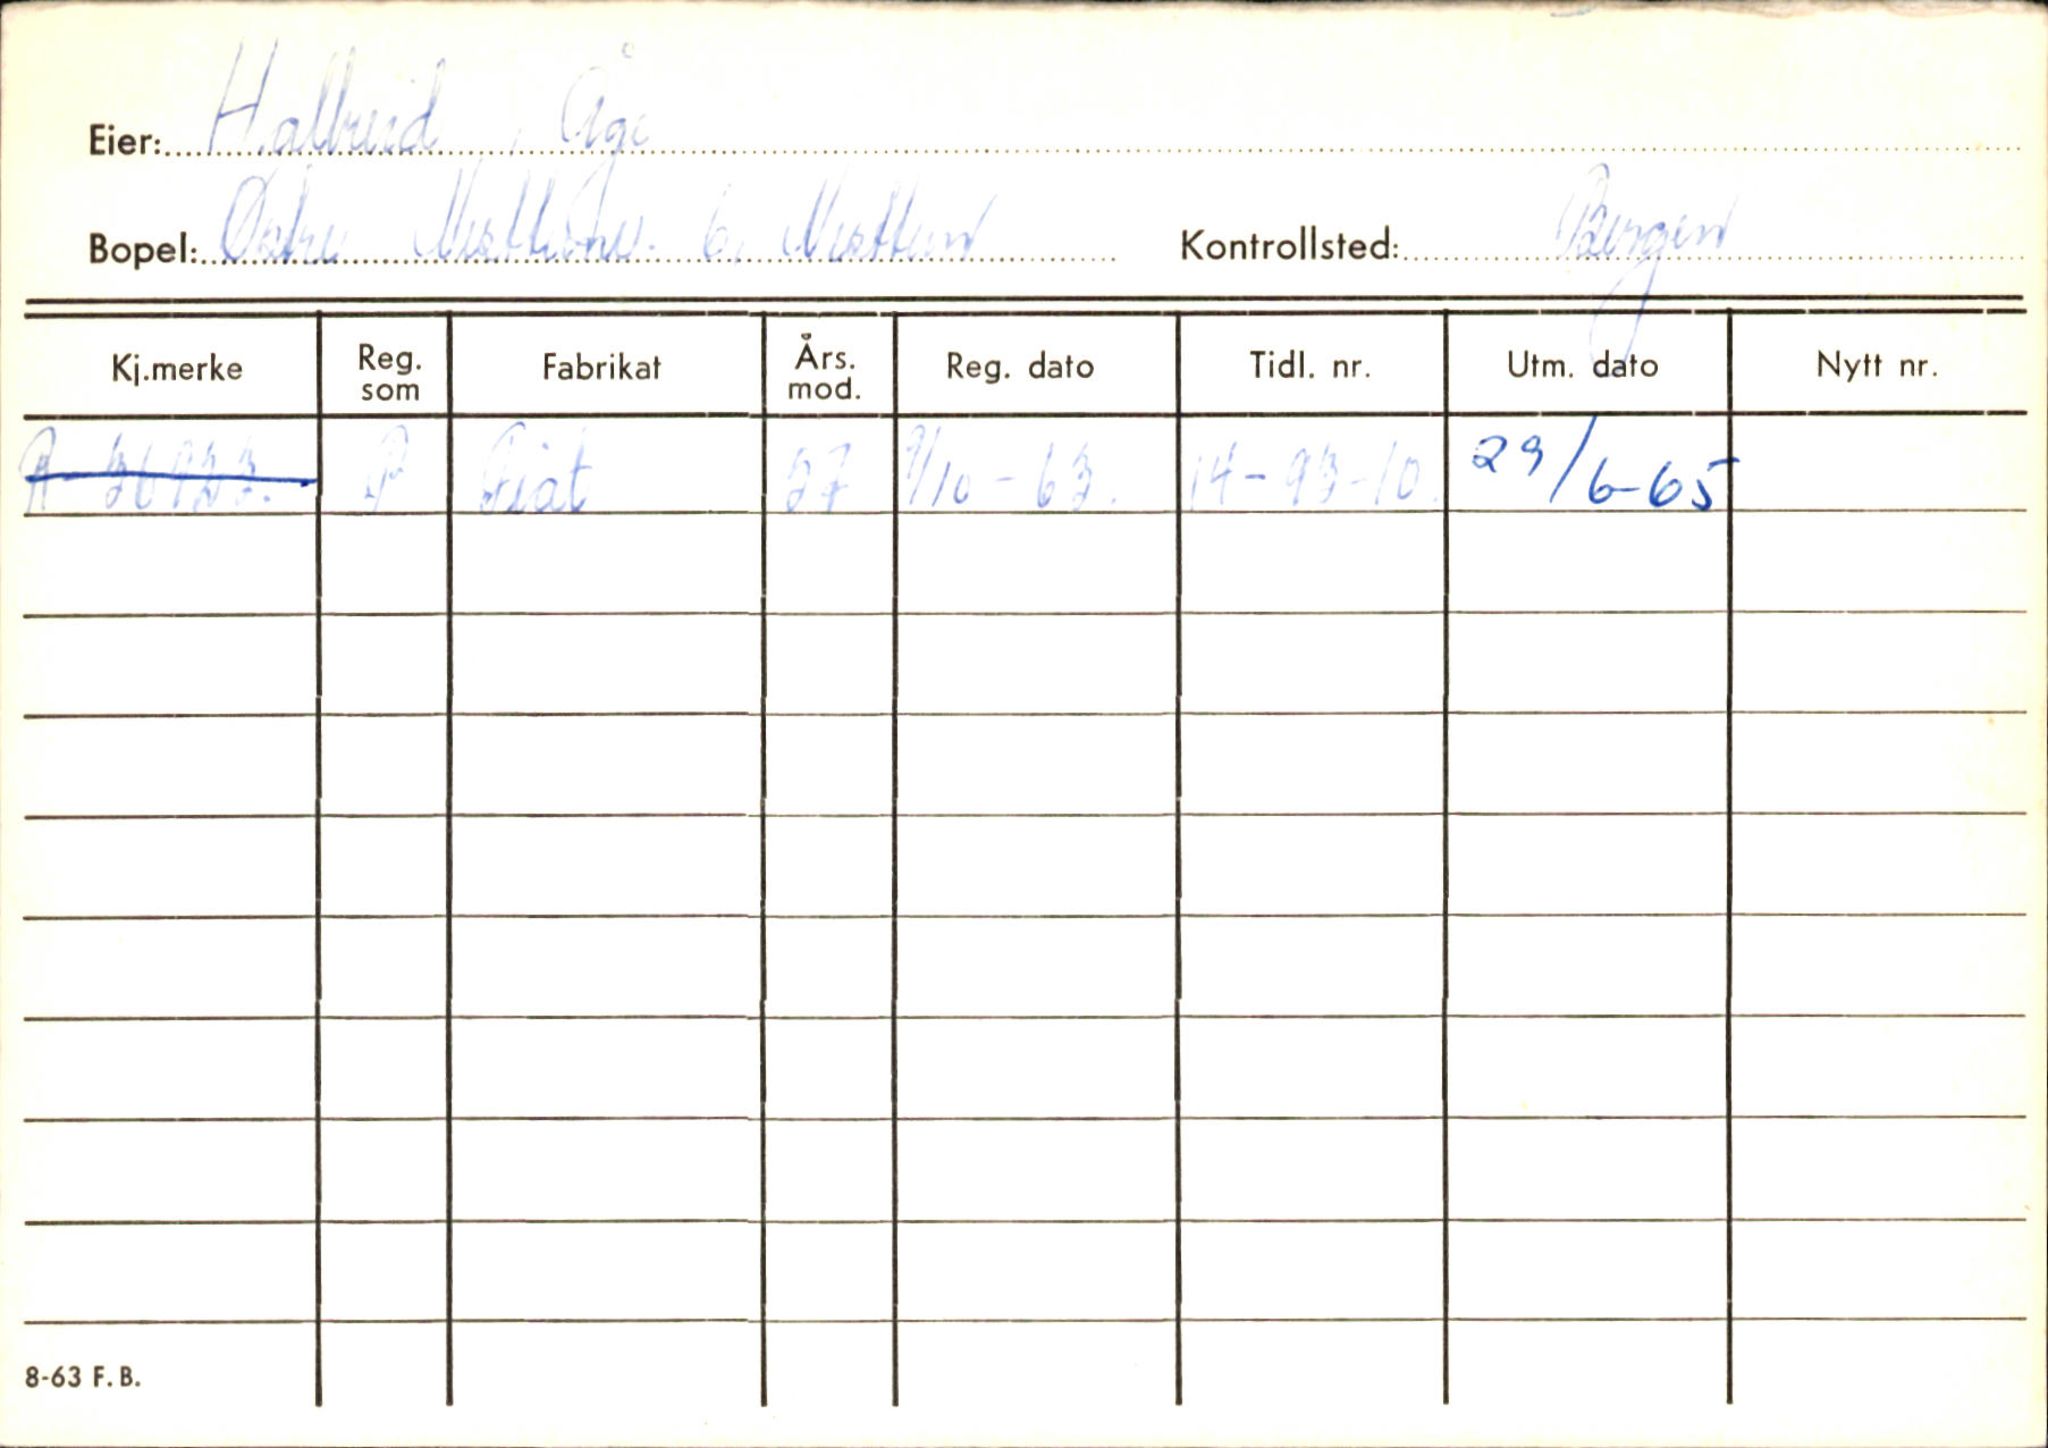 Eier: Halbreid, Åge
Bopel: Østre Nesttunv. 6, Nesttun Kontrollsted: Bergen
Kj.merke Reg. som Fabrikat Års. mod. Reg. dato Tidl. nr. Utm. dato Nytt nr.
P Fiat 37 9/10-63. 14-93-10. 29/6-65
8-63 F.B.